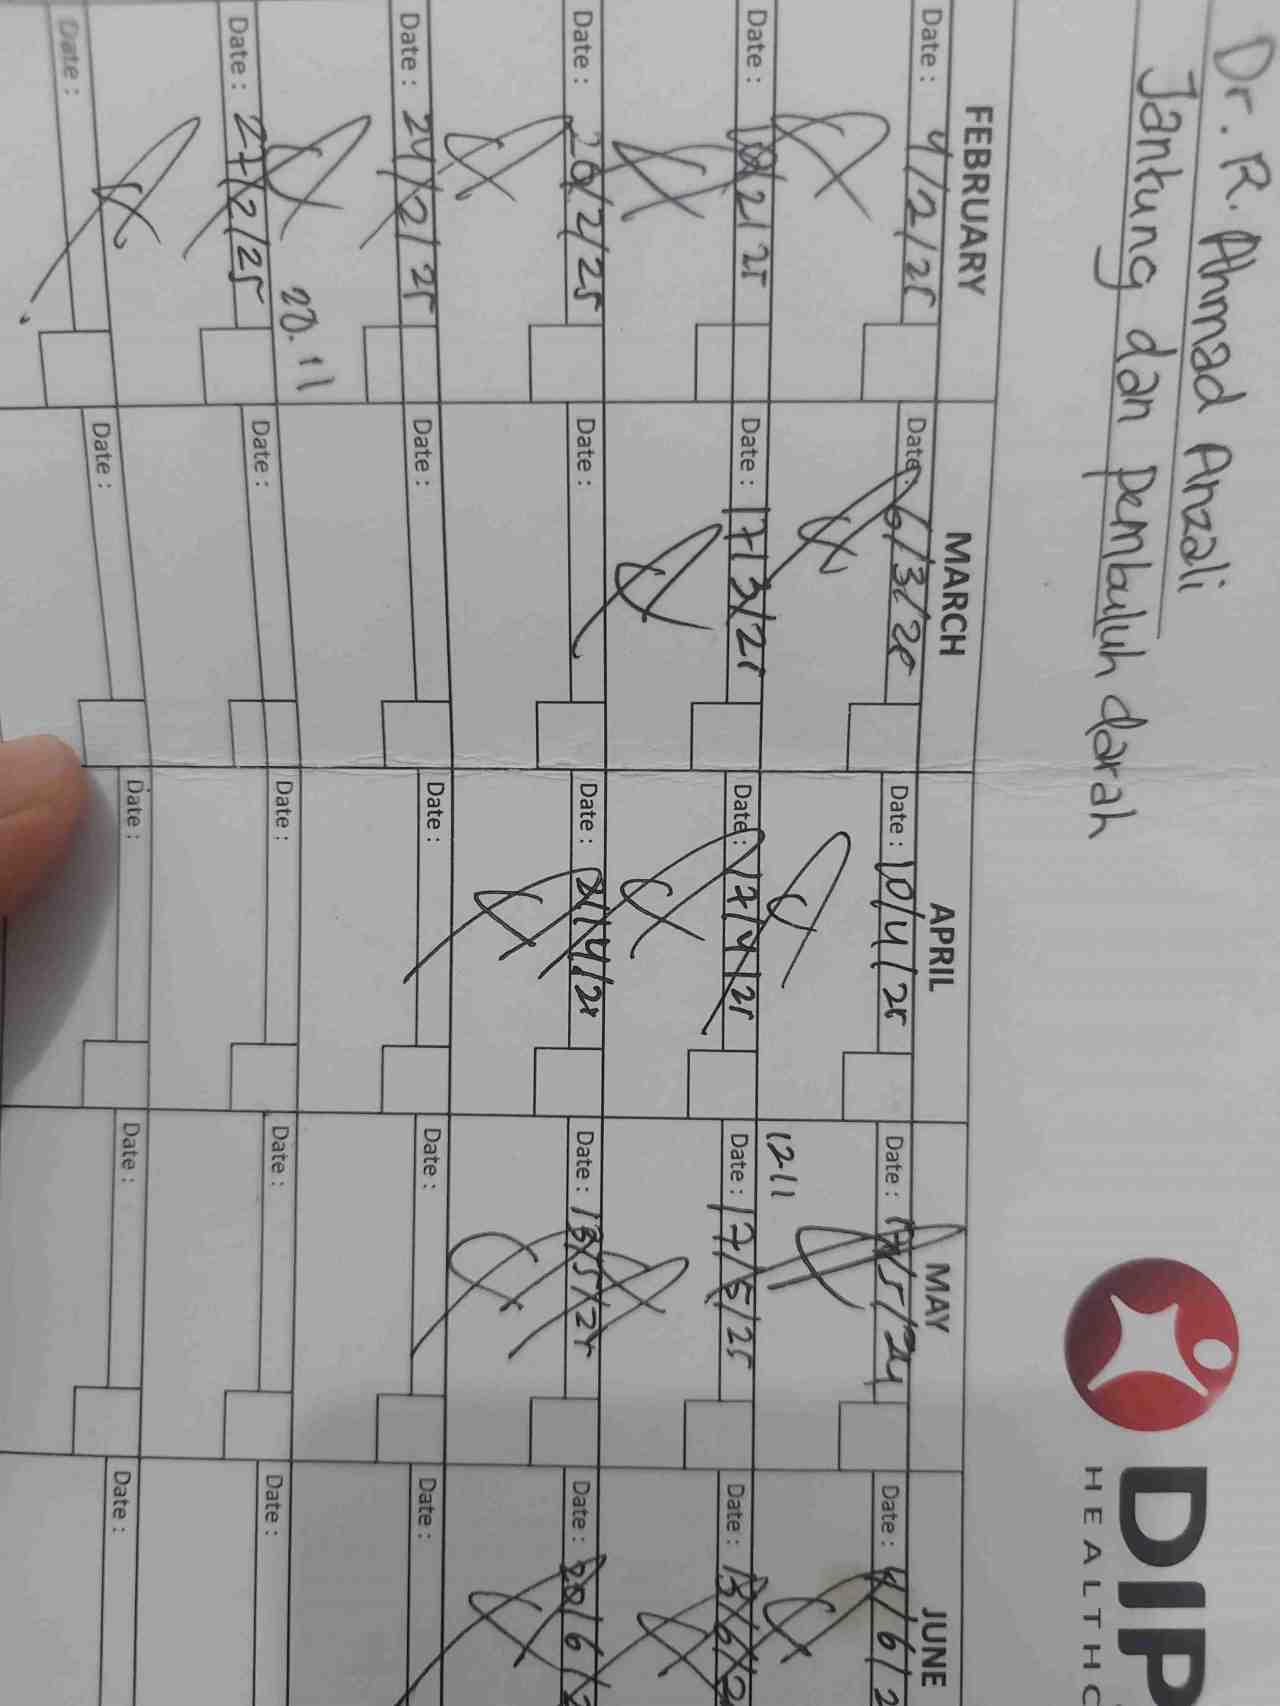 Dr. R. Ahmad Anzali
Jantung dan pembuluh darah
DIP
HEALTHC
FEBRUARY MARCH APRIL MAY JUNE
Date : 4/2/25 Date : 6/3/25 Date : 10/4/25 Date : 5/24 Date : 4/6/2
12-11
Date : 18/2/25 Date : 17/3/25 Date : 17/4/25 Date : 17/5/25 Date : 13/6/2
Date : 20/2/25 Date : Date : 21/4/25 Date : 13/5/25 Date : 20/6/2
Date : 24/2/25 Date : Date : Date : Date :
20.11
Date : 27/2/25 Date : Date : Date : Date :
Date : Date : Date : Date : Date :